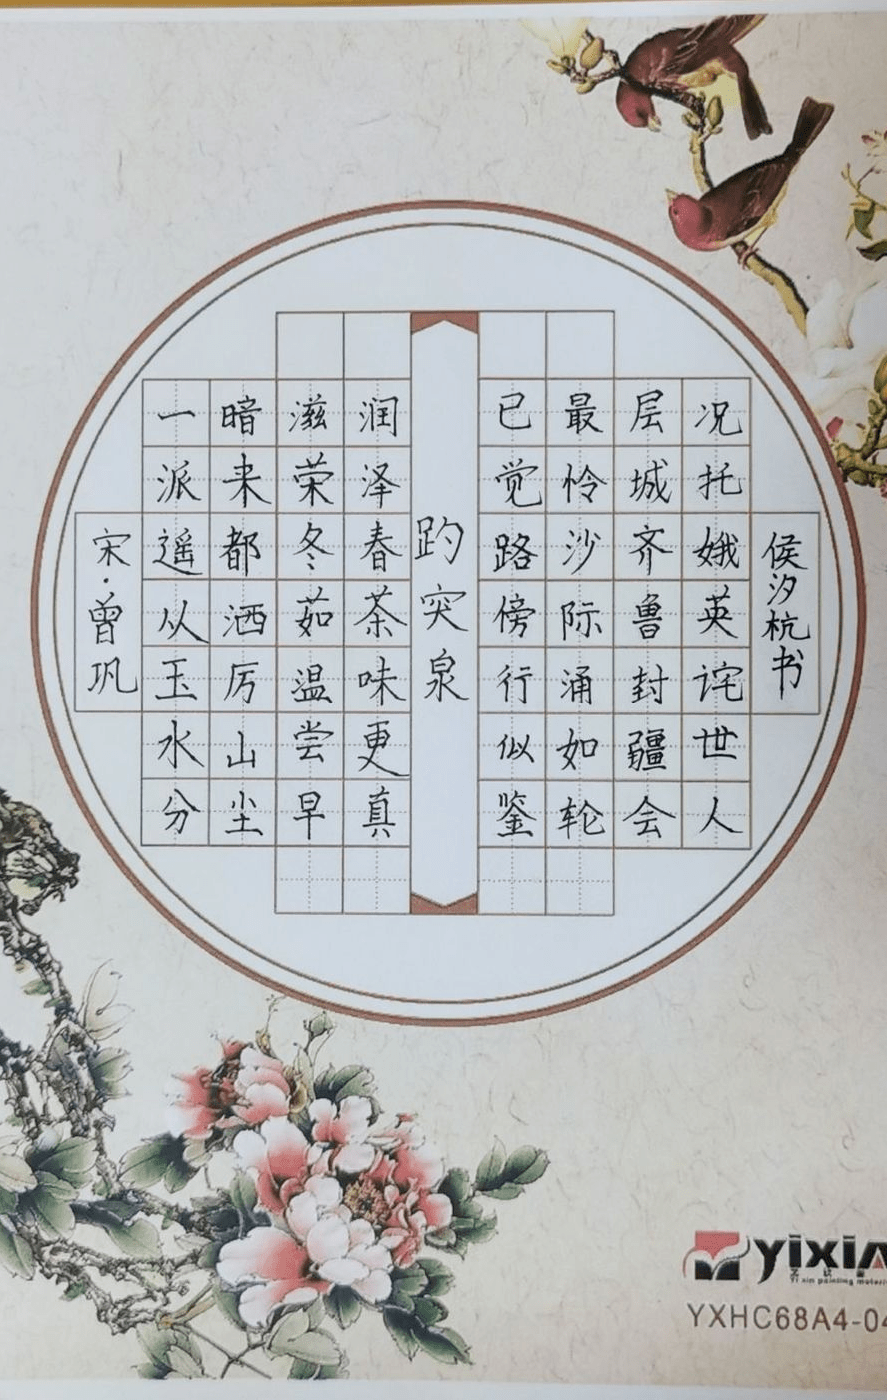 宋·曾巩
一派遥从玉水分
暗来都洒厉山尘
滋荣冬茹温尝早
润泽春茶味更真
趵突泉
已觉路傍行似鉴
最怜沙际涌如轮
层城齐鲁封疆会
况托娥英诧世人
侯汐杭书
YXHC68A4-04